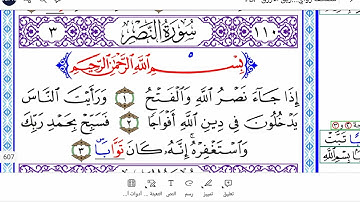 ١١٠ سُورَةُ النَّصْرِ ٣
بِسْمِ اللَّهِ الرَّحْمَٰنِ الرَّحِيمِ
إِذَا جَآءَ نَصْرُ اللَّهِ وَالْفَتْحُ ١ وَرَأَيْتَ النَّاسَ
يَدْخُلُونَ فِي دِينِ اللَّهِ أَفْوَاجًا ٢ فَسَبِّحْ بِحَمْدِ رَبِّكَ
وَاسْتَغْفِرْهُ ۚ إِنَّهُۥ كَانَ تَوَّابًۢا ٣
607
تعليق تمييز رسم النص التعبئة ... أدوات أ...
تَبَّتْ